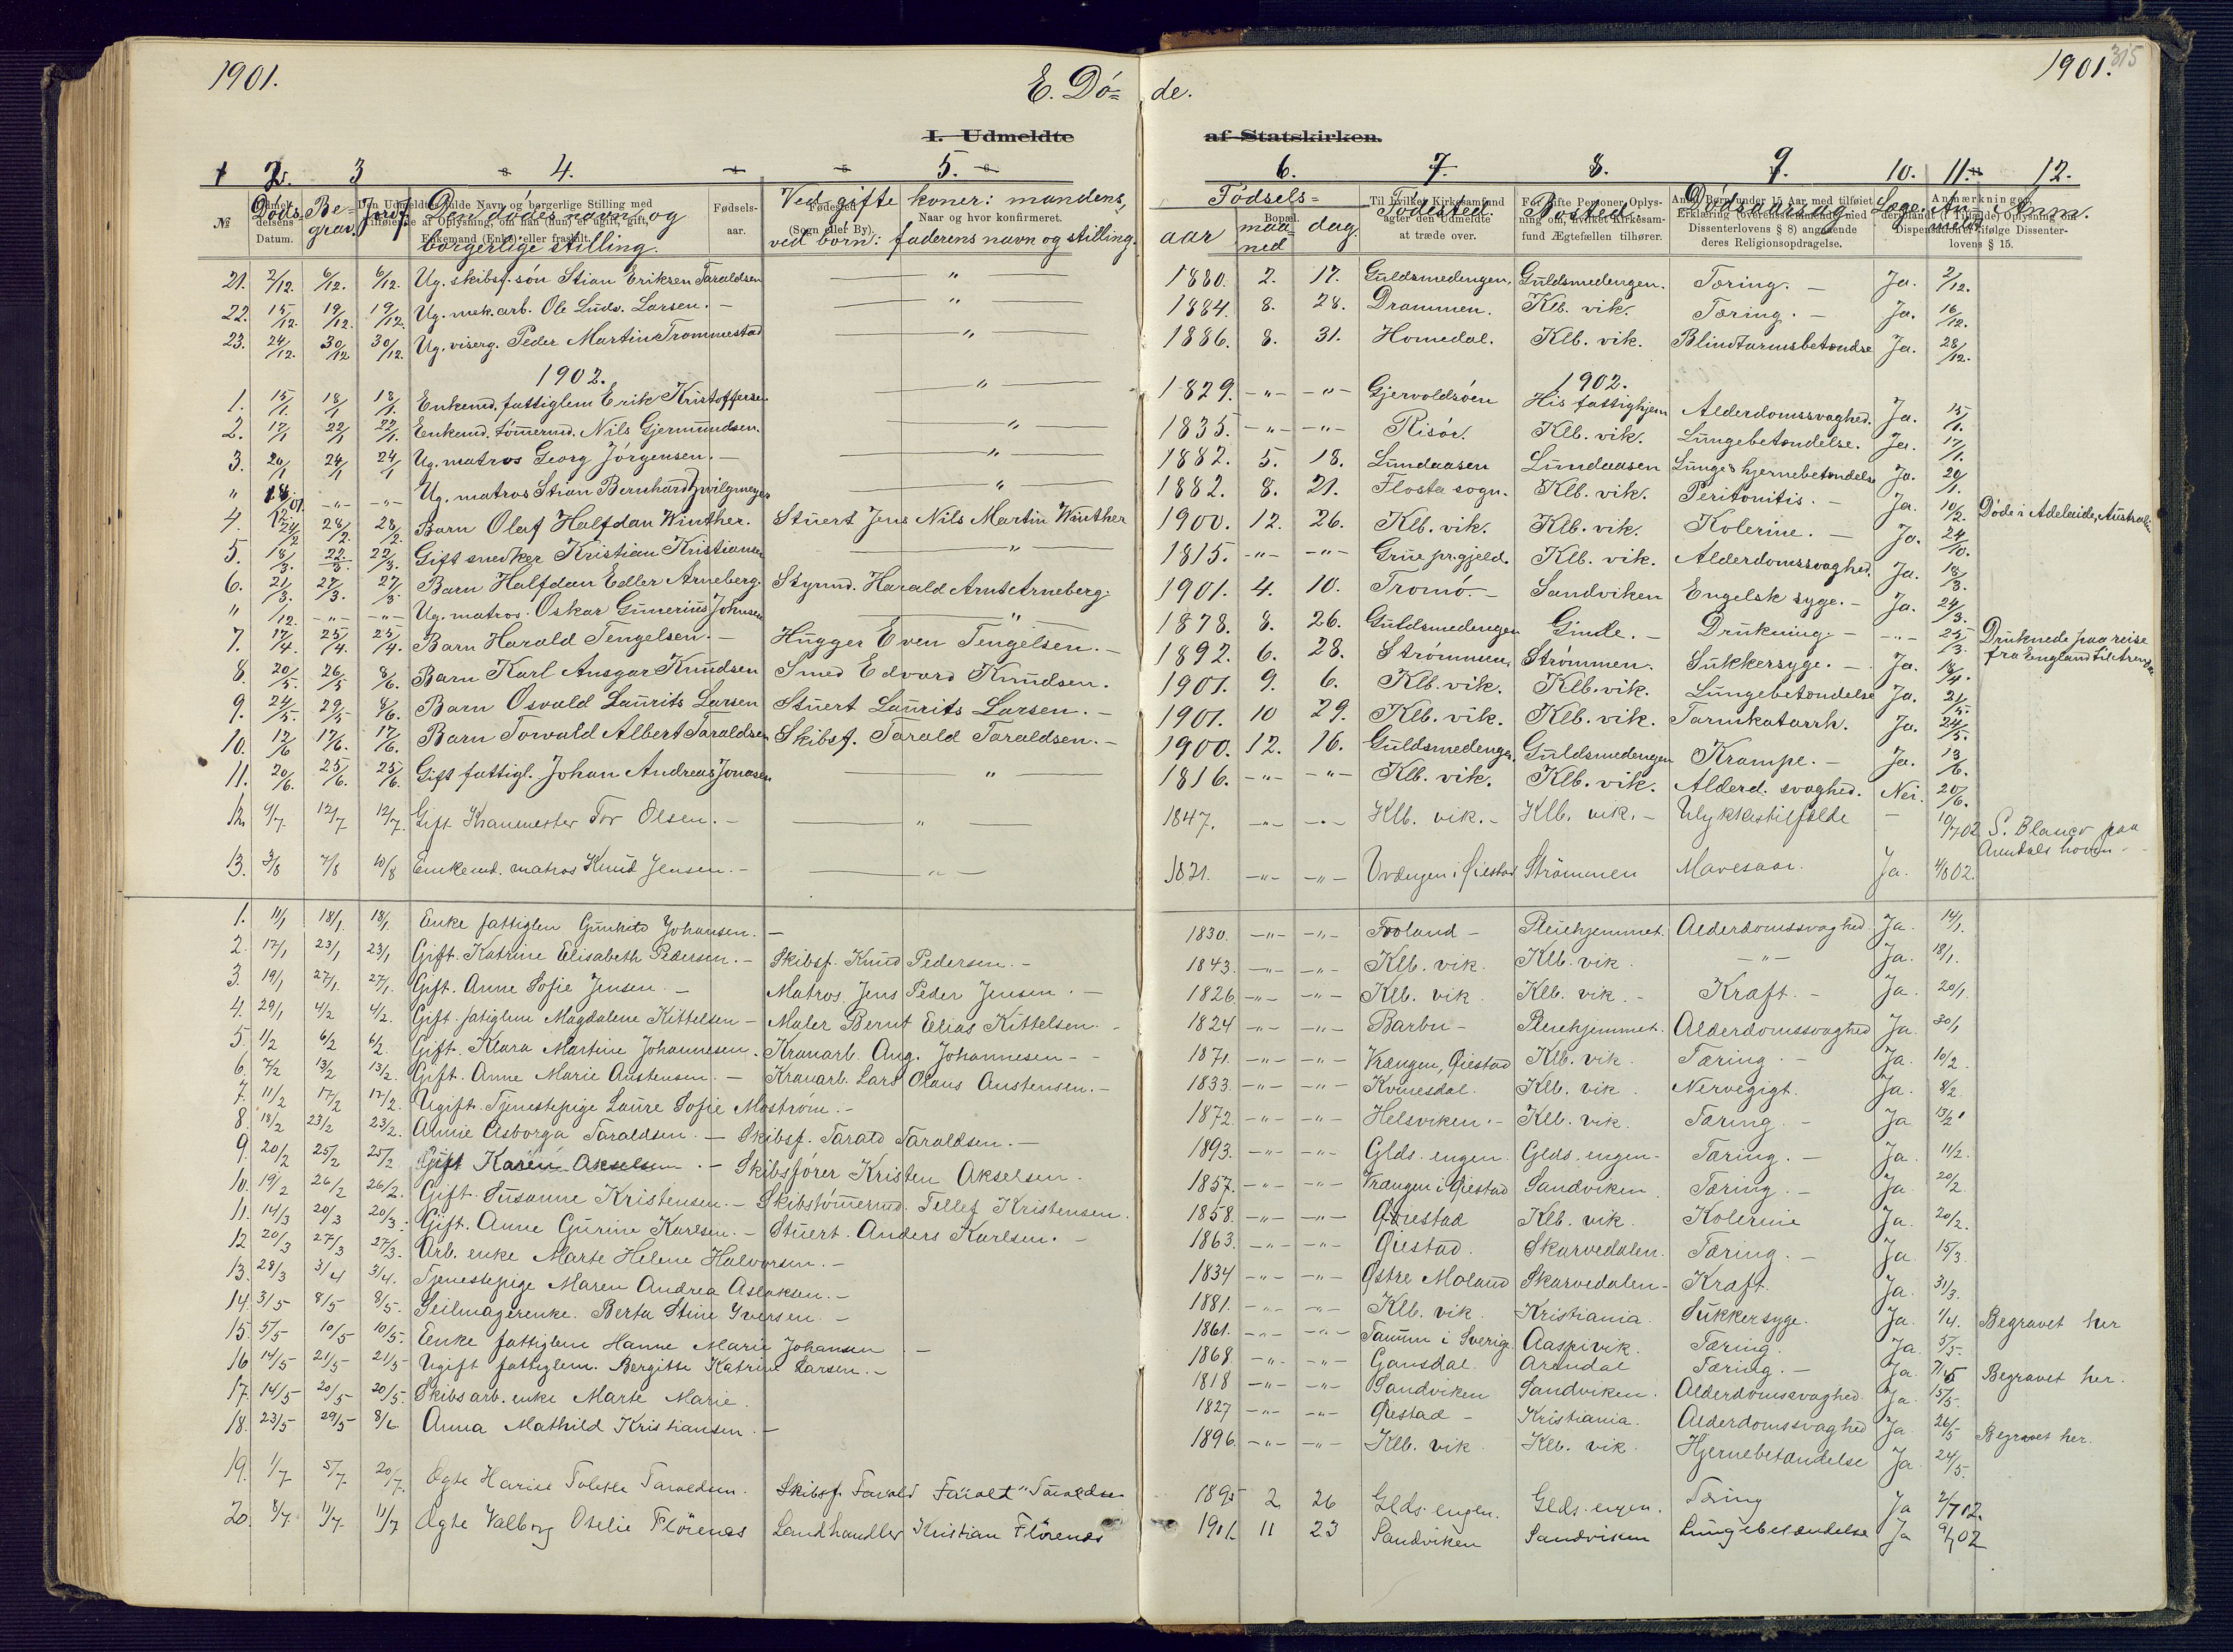 1901.
E. Dö= de.
1901.
315
I. Udmeldte af Statskirken.
1 2. 3 4. 5. 6. 7. 8. 9. 10. 11. 12.
№ Döds Be=grav. Jordf. Den dödes navn og borgerlige stilling. Ved gifte koner: mandens, ved börn: faderens navn og stilling. Födsels= aar maaned dag. Födested. Bosted. Dödsaarsag Læge. Anmeldt Anm.
21. 2/12. 6/12. 6/12. Ug. skibsf. sön Stian Eriksen Taraldsen — " — 1880. 2. 17. Guldsmedengen. Guldsmedengen. Tæring. — Ja. 2/12.
22. 15/12. 19/12. 19/12. Ug. mek. arb. Ole Ludv. Larsen. — " — 1884. 8. 28. Drammen. Klb. vik. Tæring. — Ja. 16/12.
23. 24/12. 30/12 30/12. Ug. viserg. Peder Martin Trommestad — " — 1886. 8. 31. Homedal. Klb. vik. Blindtarmsbetændse Ja. 28/12.
1902. 1902.
1. 15/1. 18/1 18/1. Enkemd. fattiglem Erik Kristoffersen — " — 1829. -"- -"- Gjervoldsöen His fattighjem Alderdomssvaghed. Ja. 15/1.
2. 17/1 22/1 22/1. Enkemd. tömermd. Nils Gjermundsen. — " — 1835. -"- -"- Risör. Klb. vik. Lungebetændelse. Ja. 17/1.
3. 20/1 24/1 24/1 Ug. matros Georg Jörgensen. — " — 1882. 5. 18. Lundaasen Lundaasen Lunge & hjernebetændelse Ja. 20/1.
" -"- -"- Ug. matros Stian Bernhard Zwilgmeyer — " — 1882. 8. 21. Flosta sogn. Klb. vik. Peritonitis. — Ja. 10/2. Döde i Adelaide, Australien
4. 24/2 28/2. 28/2. Barn Olaf Halfdan Winther. Stuert Jens Nils Martin Winther 1900. 12. 26. Klb. vik. Klb. vik. Kolerine. — Ja. 24/10.
5. 18/3. 22/3 22/3. Gift snedker Kristian Kristiansen — " — 1815. -"- -"- Grue pr.gjeld. Klb. vik. Alderdomssvaghed. Ja. 18/3.
6. 21/3. 27/3. 27/3 Barn Halfdan Edler Arneberg. Styrmd. Harald Arnt Arneberg. 1901. 4. 10. Tromö. — Sandviken Engelsk syge. — Ja. 24/3.
" 1/12. -"- -"- Ug. matros. Oskar Gunerius Johnsen — " — 1878. 8. 26. Guldsmedengen Ginde. — Drukning. — -"- 25/3. Druknede paa reise fra England til Arendal
7. 17/4. 25/4. 25/4. Barn Harald Tengelsen. — Hugger Even Tengelsen. — 1892. 6. 28. Strömmen. Strömmen. Sukkersyge. — Ja. 18/4.
8. 20/5. 26/5 8/6. Barn Karl Ansgar Knudsen Smed Edvard Knudsen. 1901. 9. 6. Klb. vik. Klb. vik. Lungebetændelse Ja. 21/5.
9. 24/5. 29/5 8/6. Barn Osvald Laurits Larsen Stuert Laurits Larsen. — 1901. 10 29. Klb. vik. Klb. vik. Tarmkatarrh. Ja. 24/5.
10. 12/6 17/6. 17/6. Barn Torvald Albert Taraldsen Skibsf. Tarald Taraldsen. — 1900. 12. 16. Guldsmedengen. Guldsmedengen Krampe. — Ja. 13/6.
11. 20/6. 25/6. 25/6. Gift fattigl. Johan Andreas Jonasen — " — 1816. -"- -"- Klb. vik. Klb. vik. Alderd. svaghed. Nei. 20/6.
12. 9/7 12/7 12/7. Gift Kranmester Tor Olsen. — " — 1847. -"- -"- Klb. vik. — Klb. vik. — Ulykkestilfælde — 10/7 02 S. Blanco paa Arendals havn —
13. 3/8 7/8 10/8 Enkemd. matros Knud Jensen. — " — 1821. -"- -"- Vrængen i Öiestad Strömmen Mavesaar. Ja. 4/8 02.
1. 11/1 18/1. 18/1. Enke fattiglem Gunhild Johansen. — 1830. -"- -"- Froland — Pleiehjemmet. Alderdomssvaghed Ja. 14/1.
2. 17/1 23/1 23/1 Gift. Katrine Elisabeth Pedersen. — Skibsf. Knud Pedersen. — 1843. -"- -"- Klb. vik. Klb. vik. -"- Ja. 18/1.
3. 19/1 27/1. 27/1. Gift. Anne Sofie Jensen. — Matros. Jens Peder Jensen. — 1826. -"- -"- Klb. vik Klb. vik. — Kræft. — Ja. 20/1.
4. 29/1 4/2 4/2. Gift. fatiglem Magdalene Kittelsen — Maler Bernt Elias Kittelsen. — 1824 -"- -"- Barbu — Pleiehjemmet. Alderdomssvaghed Ja. 30/1
5. 1/2 6/2 6/2. Gift. Klara Martine Johannesen. Kranarb. Aug. Johannesen — 1871. -"- -"- Vrængen, Öiestad Klb. vik. Tæring. — Ja. 10/2.
6. 7/2 13/2 13/2. Gift. Anne Marie Austensen. — Kranarb. Lars Olaus Austensen. — 1833. -"- -"- Kvinesdal. Klb. vik. Nervegigt. Ja. 8/2.
7. 11/2 17/2 17/2. Ugift. Tjenestepige Laure Sofie Moström. — 1872. -"- -"- Helsviken. — Klb. vik. Tæring. — Ja 13/2
8. 18/2 23/2 23/2. Annie Asborga Taraldsen. — Skibsf. Tarald Taraldsen. — 1893. -"- -"- Glds. engen. Glds. engen. Tæring. — Ja. 11/2.
9. 20/2 25/2 25/2 Gift Karen Akselsen. — Skibsförer Kristen Akselsen. 1857. -"- -"- Vrængen i Öiestad Sandviken Tæring. — Ja 20/2
10. 19/2 26/2 26/2. Gift. Susanne Kristensen. — Skibstömermd. Tellef Kristensen. 1858. -"- -"- Öiestad Klb. vik. Kolerine Ja. 20/2.
11. 14/3 20/3 20/3. Gift. Anne Gurine Karlsen. — Stuert. Anders Karlsen. — 1863. -"- -"- Öiestad. Skarvedalen. Tæring. — Ja 15/3.
12 20/3 27/3 27/3. Arb. enke Marte Helene Halvorsen. — 1834 -"- -"- Østre Moland Skarvedalen — Kræft. Ja. 31/3.
13. 28/3 3/4 3/4. Tjenestepige Maren Andrea Aslaksen. — 1881. -"- -"- Klb. vik. Kristiania. Sukkersyge. Ja. 1/4. Begravet her
14. 3/5 8/5 8/5. Seilmagerenke. Berta Stine Iversen. — 1861. -"- -"- Tanum i Sverige Aaspivik. Tæring. Ja. 5/5.
15. 5/5 10/5 10/5. Enke fattiglem Hanne Marie Johansen. — 1868. -"- -"- Gansdal. Arendal Tæring. — Ja. 7/5 Begravet her.
16 14/5 21/5 21/5 Ugift fattiglem. Bergitte Katrine Larsen. — 1818 -"- -"- Sandviken Sandviken. Alderdomssvaghed. Ja. 15/5.
17. 14/5 20/5 20/5. Skibsarb. enke Marte Marie. 1827 -"- -"- Öiestad — Kristiania. Alderdomssvaghed Ja. 26/5 Begravet her.
18. 23/5 29/5 8/6 Anna Mathild Kristiansen. — 1896. -"- -"- Klb. vik Klb. vik. Hjernebetændelse Ja. 24/5.
19. 1/7 5/7. 20/7. Ægte Taraldsen. Skibsf. Tarald Taraldsen 1895 2 26 Glds. engen. Glds. engen. Tæring Ja 2/7 02.
20. 8/7 11/7. 11/7 Ægte Valborg Otelie Flörenæs Landhandler Kristian Flörenæs 1901. 11 23 Sandviken Sandviken Lungebetændelse Ja 9/7 02